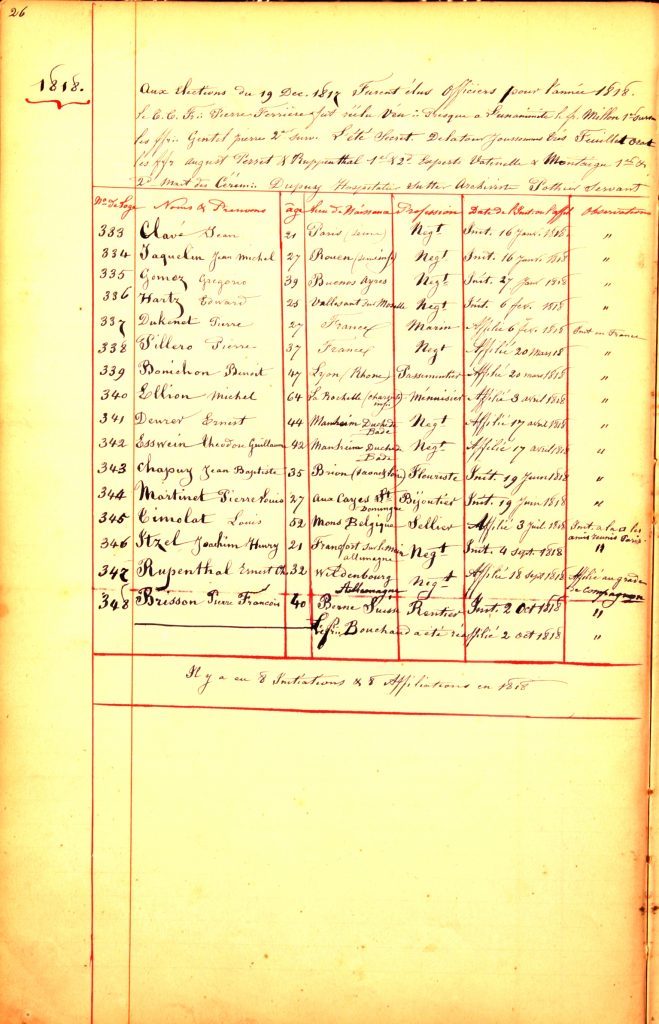 26
1818.
Aux Elections du 19 Dec. 1817 Furent élus Officiers pour l'année 1818.
Le C. C. F∴ Pierre Ferrière fut réélu Vén∴ Presque a L'unanimité le f. Meillon 1er surv
les ffr∴ Gentel pierre 2e surv. L'été Secret Delatour Joussomme Très Feuillet orat
les ffr August Perret & Ruppenthal 1er & 2d Experts Vatinelle & Montègu 1er &
2d Mait des Cérém∴ Dupuy Hospitalier Sutter Archivist Pothier Servant
No. de Loge Noms & Prenoms âge Lieu de Naissance Profession Date de l'Init ou l'affil Observations
383 Clavé Jean 21 Paris (Seine) Negt Init. 16 Janv. 1818. "
334 Jaquelin Jean Michel 27 Rouen Negt Init. 16 Janv. 1818 "
335 Gomez Gregorio 39 Buenos Ayres Negt Init. 27 Janv 1818 "
336 Hartz Edward 25 sur Moselle Negt Init. 6 fev. 1818 "
337 Dukenet Pierre 27 France Marin Affilié 6 fev. 1818 Init en France
338 Sillero Pierre 37 France Negt Affilié 20 Mars 18 "
339 Bonichon Benoit 47 Lyon (Rhone) Passementier Affilié 20 mars 1818 "
340 Ellion Michel 64 La Rochelle (charente infre) Mennisier Affilié 3 avril 1818 "
341 Deurer Ernest 44 Manheim Duché de Bade Negt Affilié 17 avril 1818 "
342 Esswein théodore Guillaum 42 Manheim Duché de Bade Negt Affilié 17 avril 1818 "
343 Chapuy Jean Baptiste 35 Brion Fleuriste Init. 19 Juin 1818 "
344 Martinet Pierre Louis 27 Aux Cayes St Domingue Bijoutier Init. 19 Juin 1818 "
345 Cimolat Louis 52 Mons Belgique Sellier Affilié 3 Juil 1818 Init. a la □ les amis réunis Paris.
346 Itzel Joachim Henry 21 Francfort sur le mein allemagne Negt Init. 4 sept 1818 "
347 Rupenthal Ernest Ch. 32 Wildenbourg Allemagne Negt Affilié 18 sept 1818 Affilié au grade de Compagnon
348 Brisson Pierre Francois 40 Berne Suisse Rentier Init. 2 Oct 1818 "
Le f∴ Bouchaud a été réaffilié 2 oct 1818 "
Il y a eu 8 Initiations & 8 Affiliations en 1818